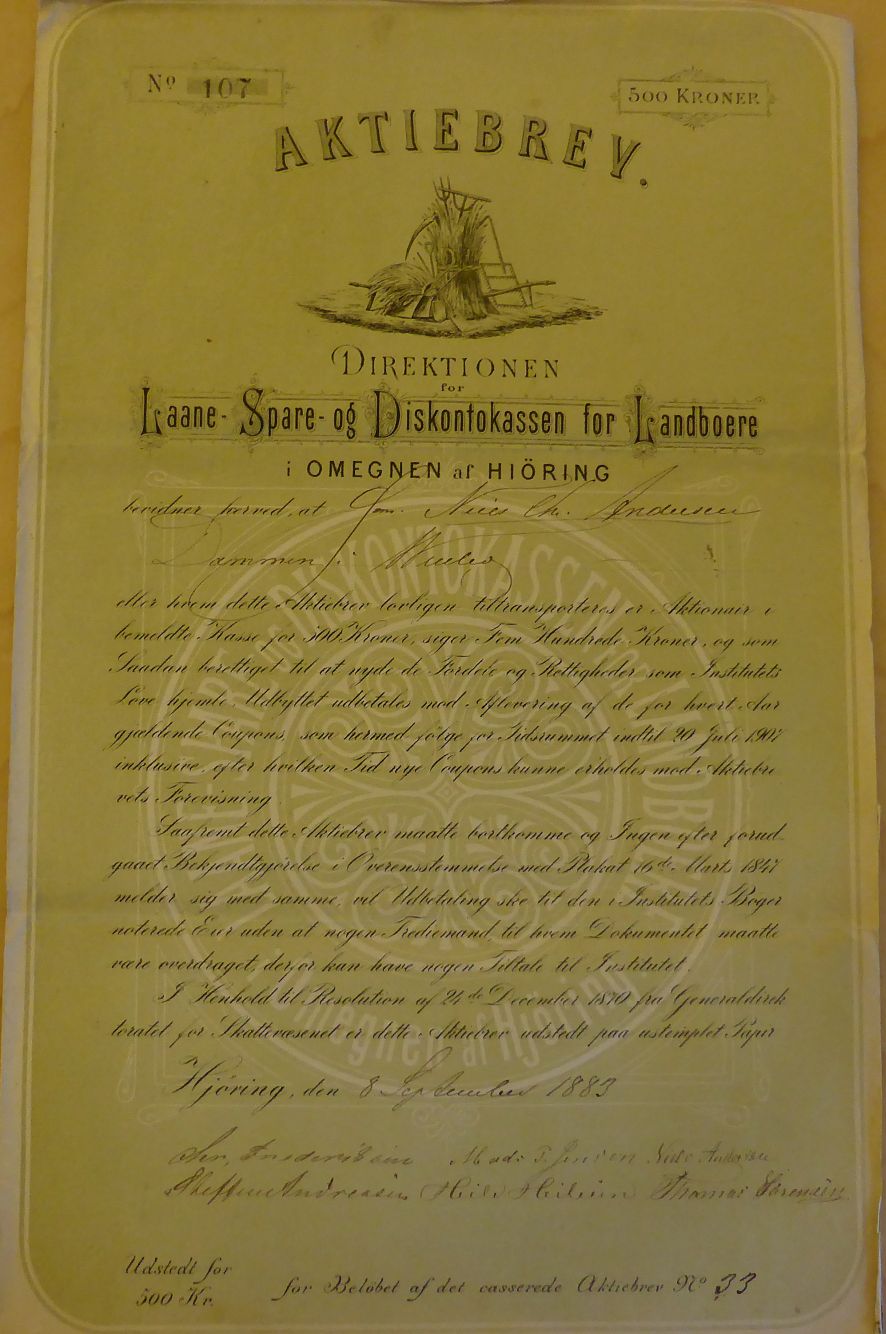 Nº 107
500 KRONER.
AKTIEBREV.
DIREKTIONEN
for
Laane- Spare- og Diskontokassen for Landboere
i OMEGNEN af HIÖRING
bevidner herved, at Niels Chr. Andersen
i
eller hvem dette Aktiebrev lovligen tiltransporteres er Aktionair i
bemeldte Kasse for 500 Kroner, siger Fem Hundrede Kroner, og som
Saadan berettiget til at nyde de Fordele og Rettigheder som Institutets
Love hjemle. Udbyttet udbetales mod Aflevering af de for hvert Aar
gjældende Coupons, som hermed følge for Tidsrummet indtil 20 Juli 1907
inklusive, efter hvilken Tid nye Coupons kunne erholdes mod Aktiebre
vets Forevisning.
Saafremt dette Aktiebrev maatte bortkomme og Ingen efter forud-
gaaet Bekjendtgjørelse i Overensstemmelse med Plakat 16de Marts 1847
melder sig med samme, vil Udbetaling ske til den i Institutets Bøger
noterede Eier uden at nogen Trediemand, til hvem Dokumentet maatte
være overdraget, derfor kan have nogen Tiltale til Institutet.
I Henhold til Resolution af 24de December 1870 fra Generaldirek
toratet for Skattevæsenet er dette Aktiebrev udstedt paa ustemplet Papir
Hjöring, den 8 September 1883
Chr. Frederiksen Mads P. Jensen Niels Andersen
Steffen Andreasen Thomas Sörensen
Udstedt for
500 Kr.
for Belöbet af det casserede Aktiebrev Nº 33